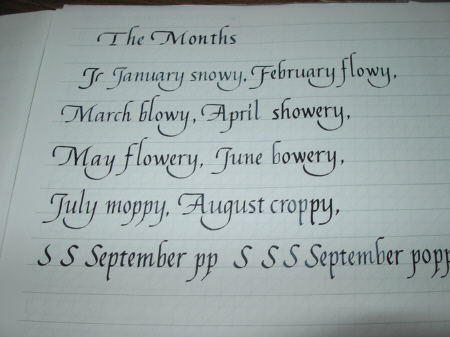 The Months
Jr January snowy, February flowy,
March blowy, April showery,
May flowery, June bowery,
July moppy, August croppy,
S S September pp S S S September popp